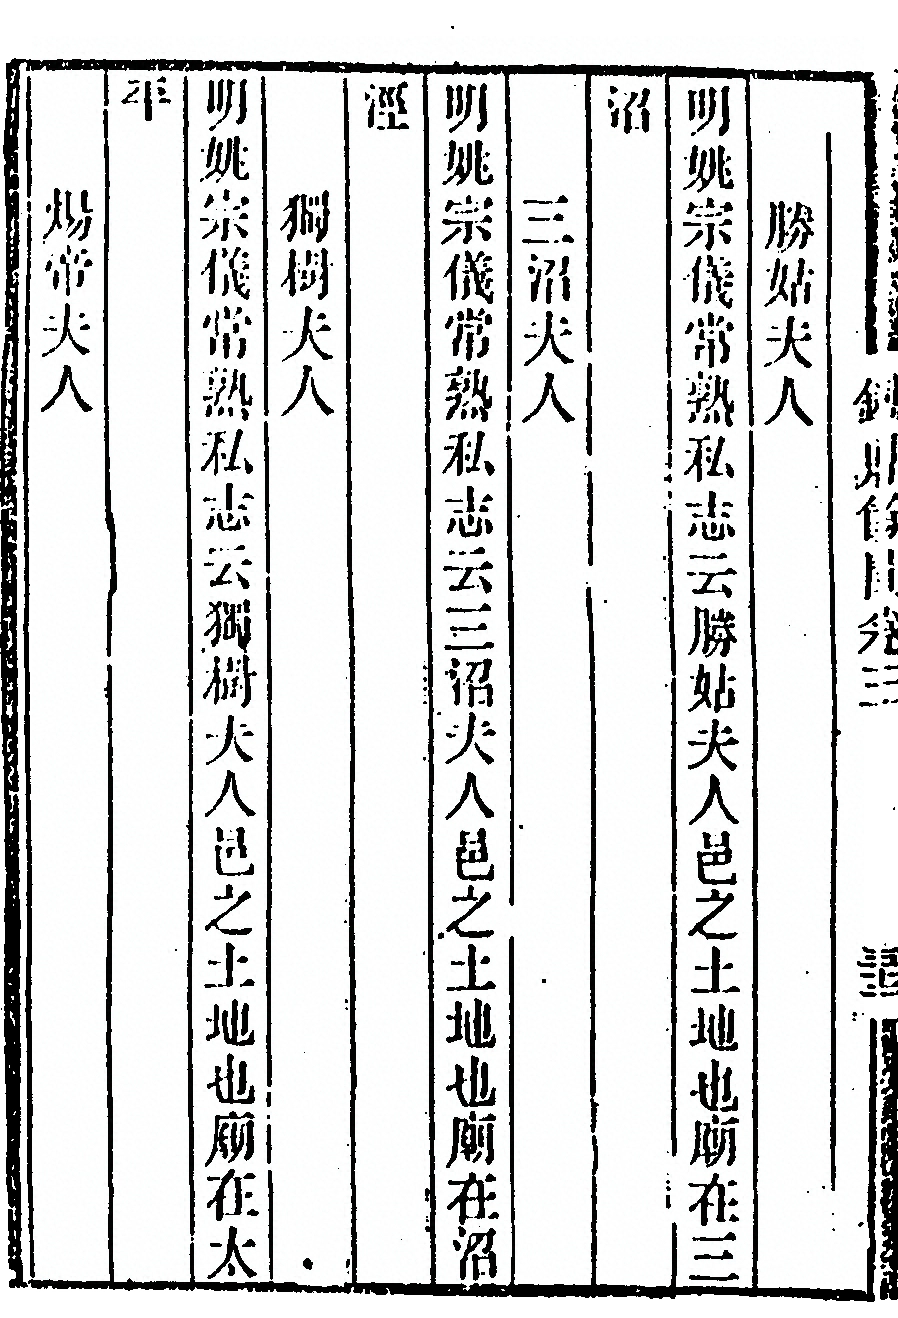 勝姑夫人
明姚宗儀常熟私志云勝姑夫人邑之土地也廟在三
沼
三沼夫人
明姚宗儀常熟私志云三沼夫人邑之土地也廟在沼
涇
獨樹夫人
明姚宗儀常熟私志云獨樹夫人邑之土地也廟在太
平
煬帝夫人